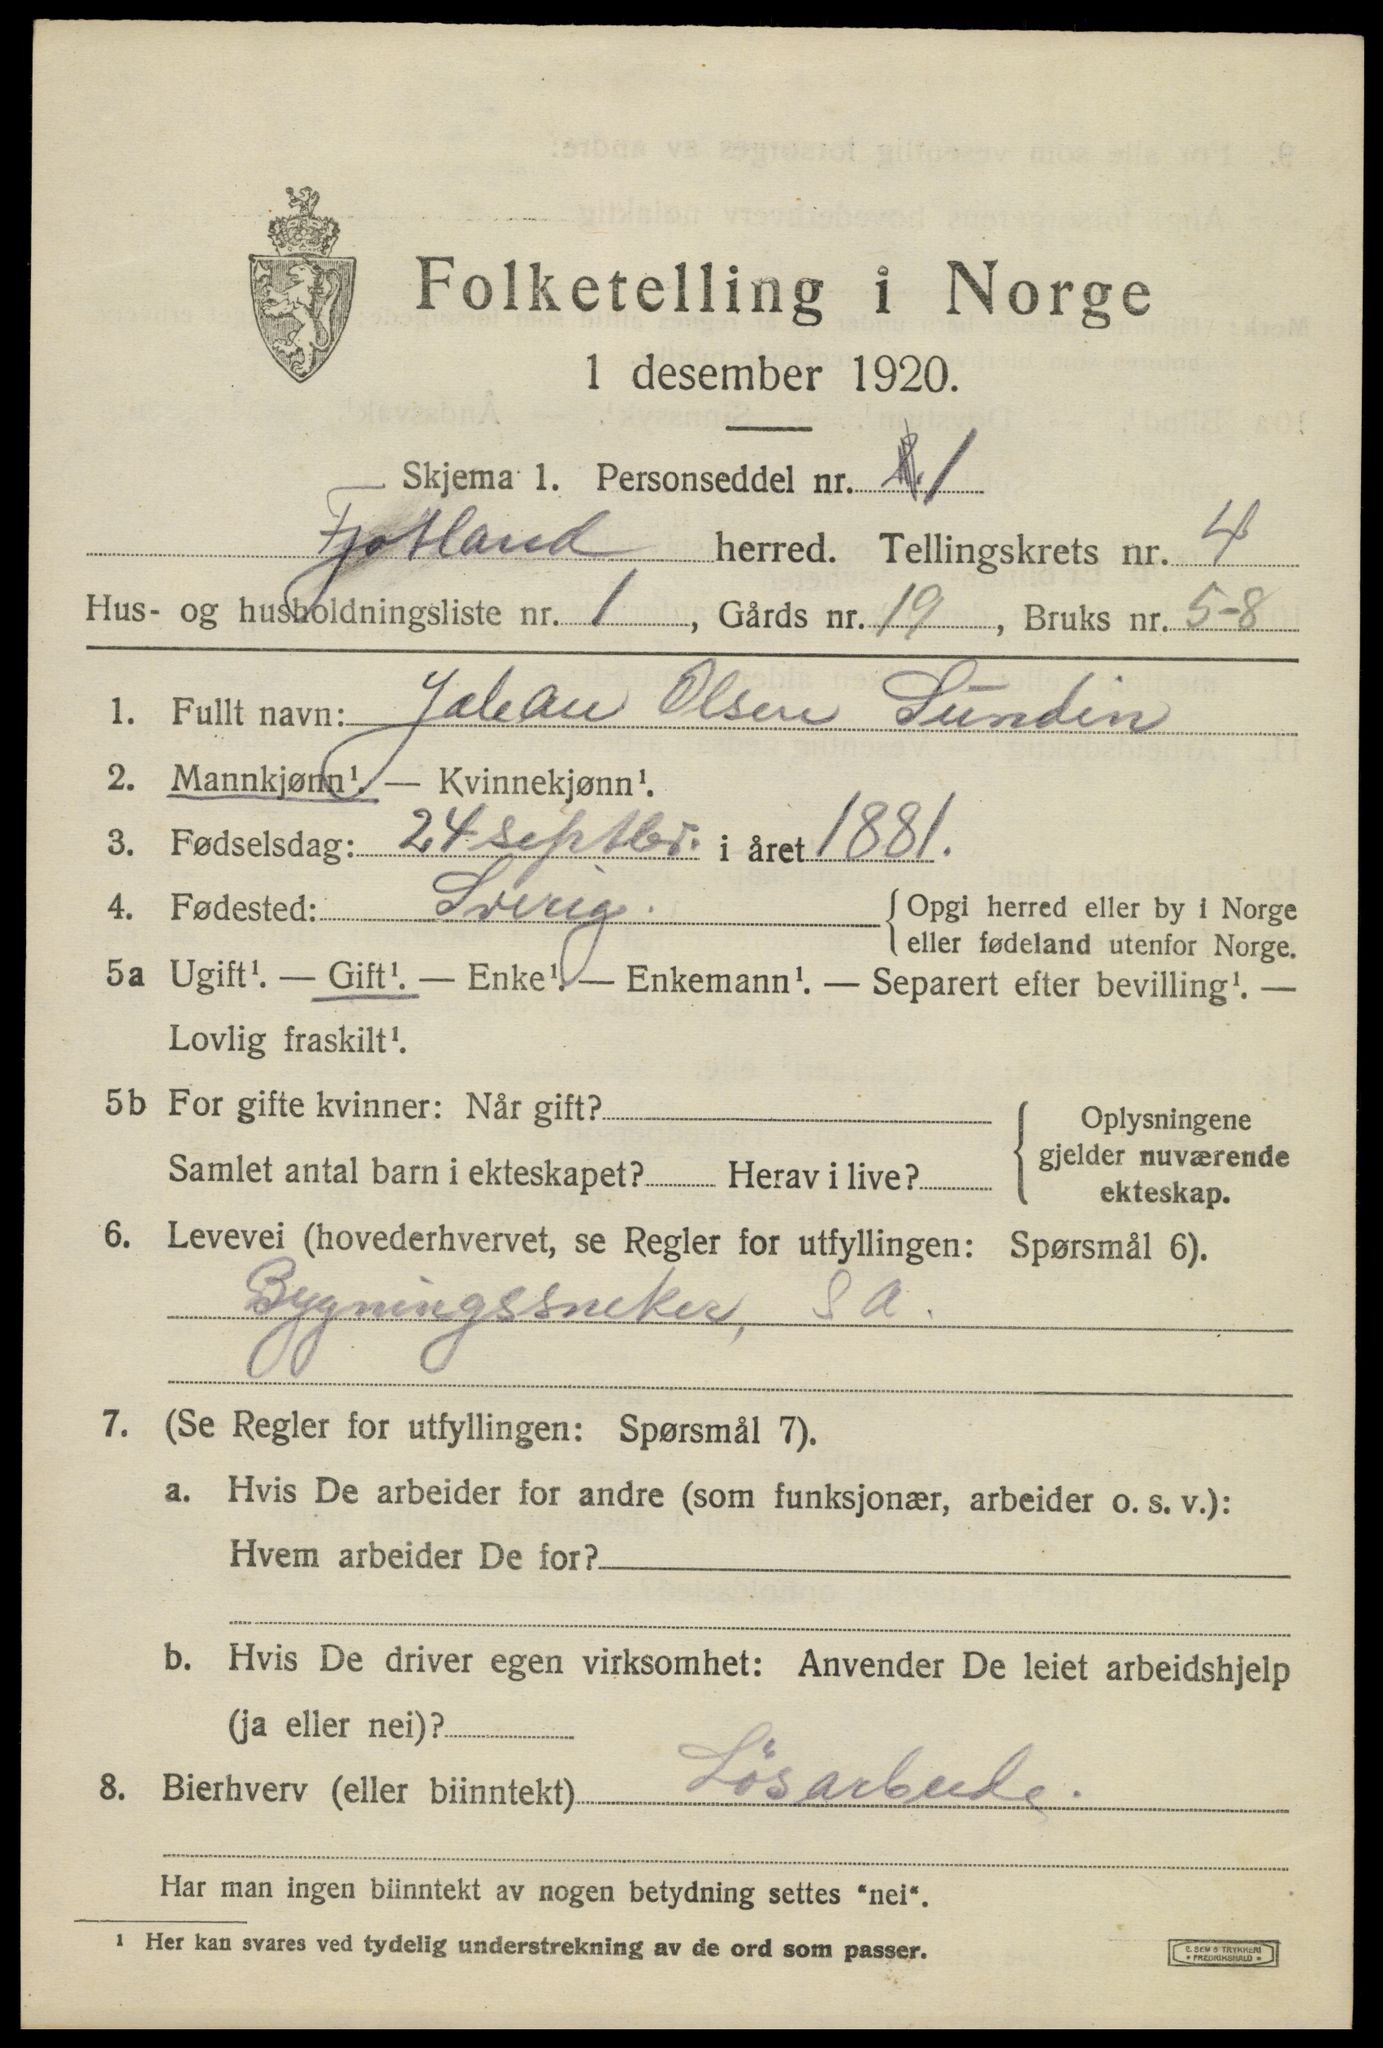 Folketelling i Norge
1 desember 1920.
Skjema 1. Personseddel nr. 1
Fjotland herred. Tellingskrets nr. 4
Hus- og husholdningsliste nr. 1, Gårds nr. 19, Bruks nr. 5-8
1. Fullt navn: Johan Olsen Sundin
2. Mannkjønn¹. — Kvinnekjønn¹.
3. Fødselsdag: 24 septbr. i året 1881.
4. Fødested: Sverig. { Opgi herred eller by i Norge
eller fødeland utenfor Norge.
5a Ugift¹. — Gift¹. — Enke¹. — Enkemann¹. — Separert efter bevilling¹. —
Lovlig fraskilt¹.
5b For gifte kvinner: Når gift?
Samlet antal barn i ekteskapet? Herav i live?
{ Oplysningene
gjelder nuværende
ekteskap.
6. Levevei (hovederhvervet, se Regler for utfyllingen: Spørsmål 6).
Bygningssneker, S A.
7. (Se Regler for utfyllingen: Spørsmål 7).
a. Hvis De arbeider for andre (som funksjonær, arbeider o. s. v.):
Hvem arbeider De for?
b. Hvis De driver egen virksomhet: Anvender De leiet arbeidshjelp
(ja eller nei)?
8. Bierhverv (eller biinntekt) Lösarbeide.
Har man ingen biinntekt av nogen betydning settes "nei".
¹ Her kan svares ved tydelig understrekning av de ord som passer.
C. SEM & TRYKKERI
• FREDRIKSHALD •